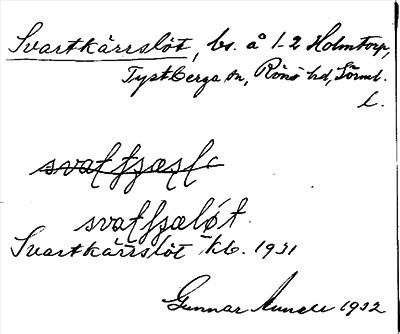 Svartkärrslöt, bs. å 1-2 Holmtorp,
Tystberga sn, Rönö hd, Sörml.
L.
svatfsæløt
Svartkärrslöt kb. 1931
Gunnar 1932